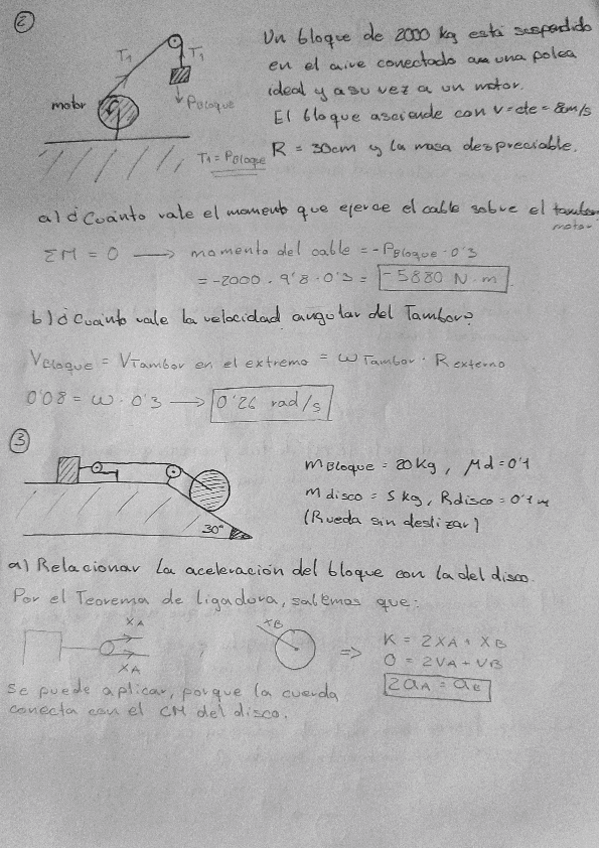 2
Un bloque de 2000 kg está suspendido
en el aire conectado a una polea
ideal y a su vez a un motor.
El bloque asciende con v=cte=8cm/s
R = 30cm y la masa despreciable.
T1
T1
PBloque
motor
T1 = PBloque
a) ¿Cuánto vale el momento que ejerce el cable sobre el tambor
motor
ΣM = 0 → momento del cable = -PBloque · 0'3
= -2000 · 9'8 · 0'3 = -5880 N·m
b) ¿Cuánto vale la velocidad angular del Tambor?
VBloque = VTambor en el extremo = ω Tambor · R externo
0'08 = ω · 0'3 → 0'26 rad/s
3
mBloque = 20 Kg, μd = 0'1
m disco = 5 kg, Rdisco = 0'1 m
(Rueda sin deslizar)
30°
a) Relacionar la aceleración del bloque con la del disco.
Por el Teorema de ligadura, sabemos que:
XA
XA
XB
⇒ K = 2XA + XB
0 = 2VA + VB
2aA = aB
Se puede aplicar, porque la cuerda
conecta con el CM del disco.